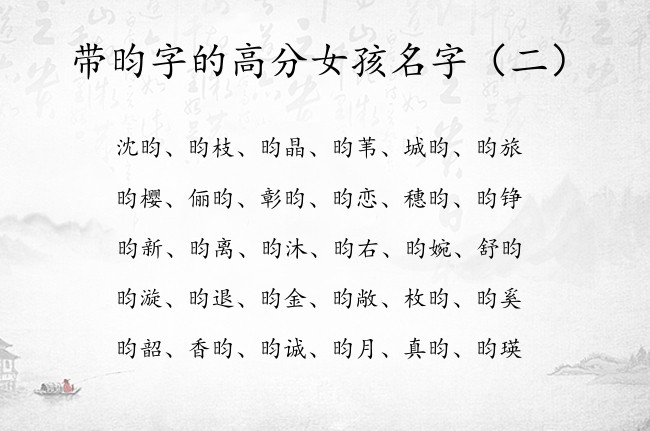 带昀字的高分女孩名字（二）
沈昀、昀枝、昀晶、昀苇、城昀、昀旅
昀樱、俪昀、彰昀、昀恋、穗昀、昀铮
昀新、昀离、昀沐、昀右、昀婉、舒昀
昀漩、昀退、昀金、昀敞、枚昀、昀奚
昀韶、香昀、昀诚、昀月、真昀、昀瑛